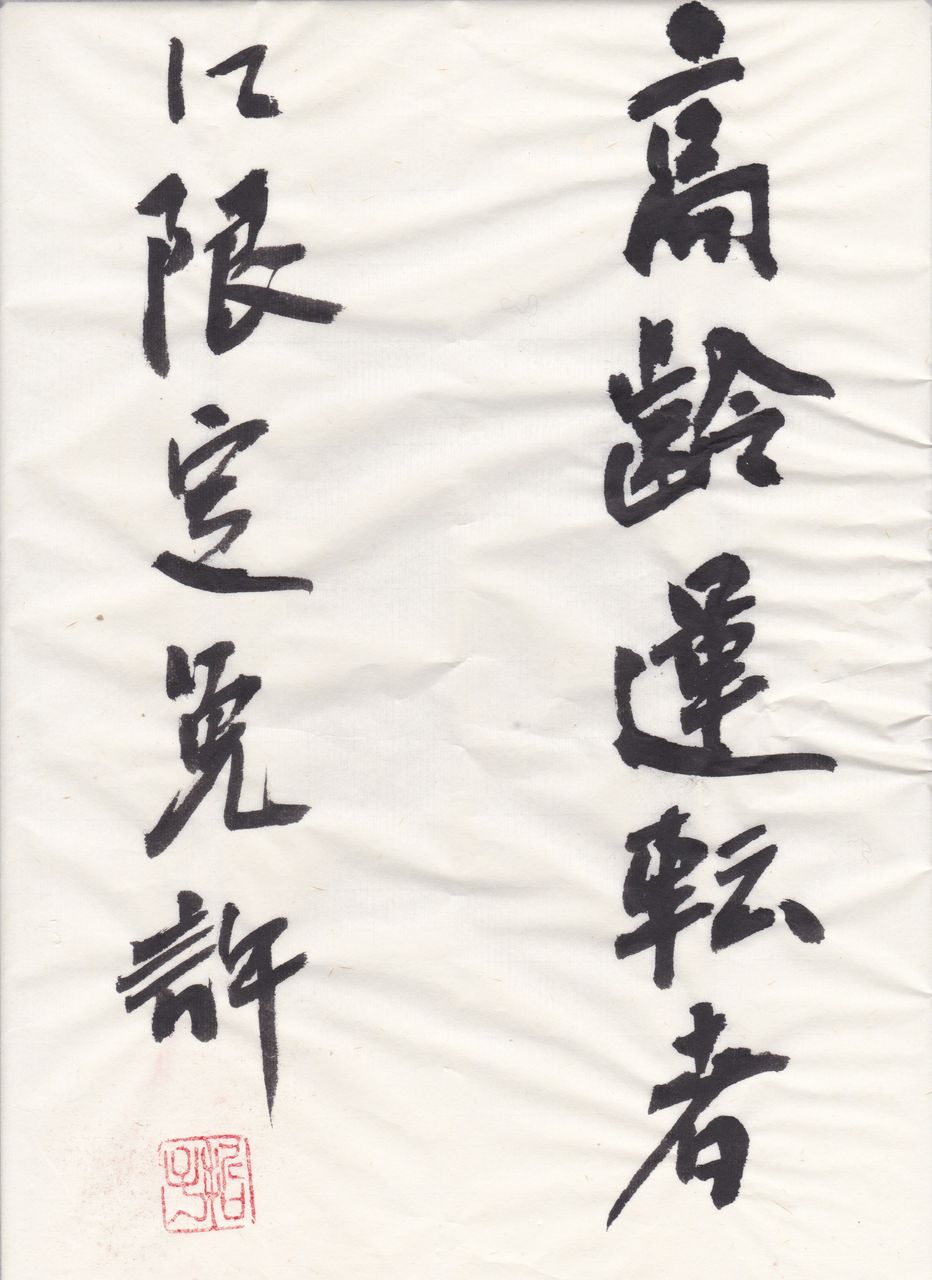 高齢運転者
に限定免許